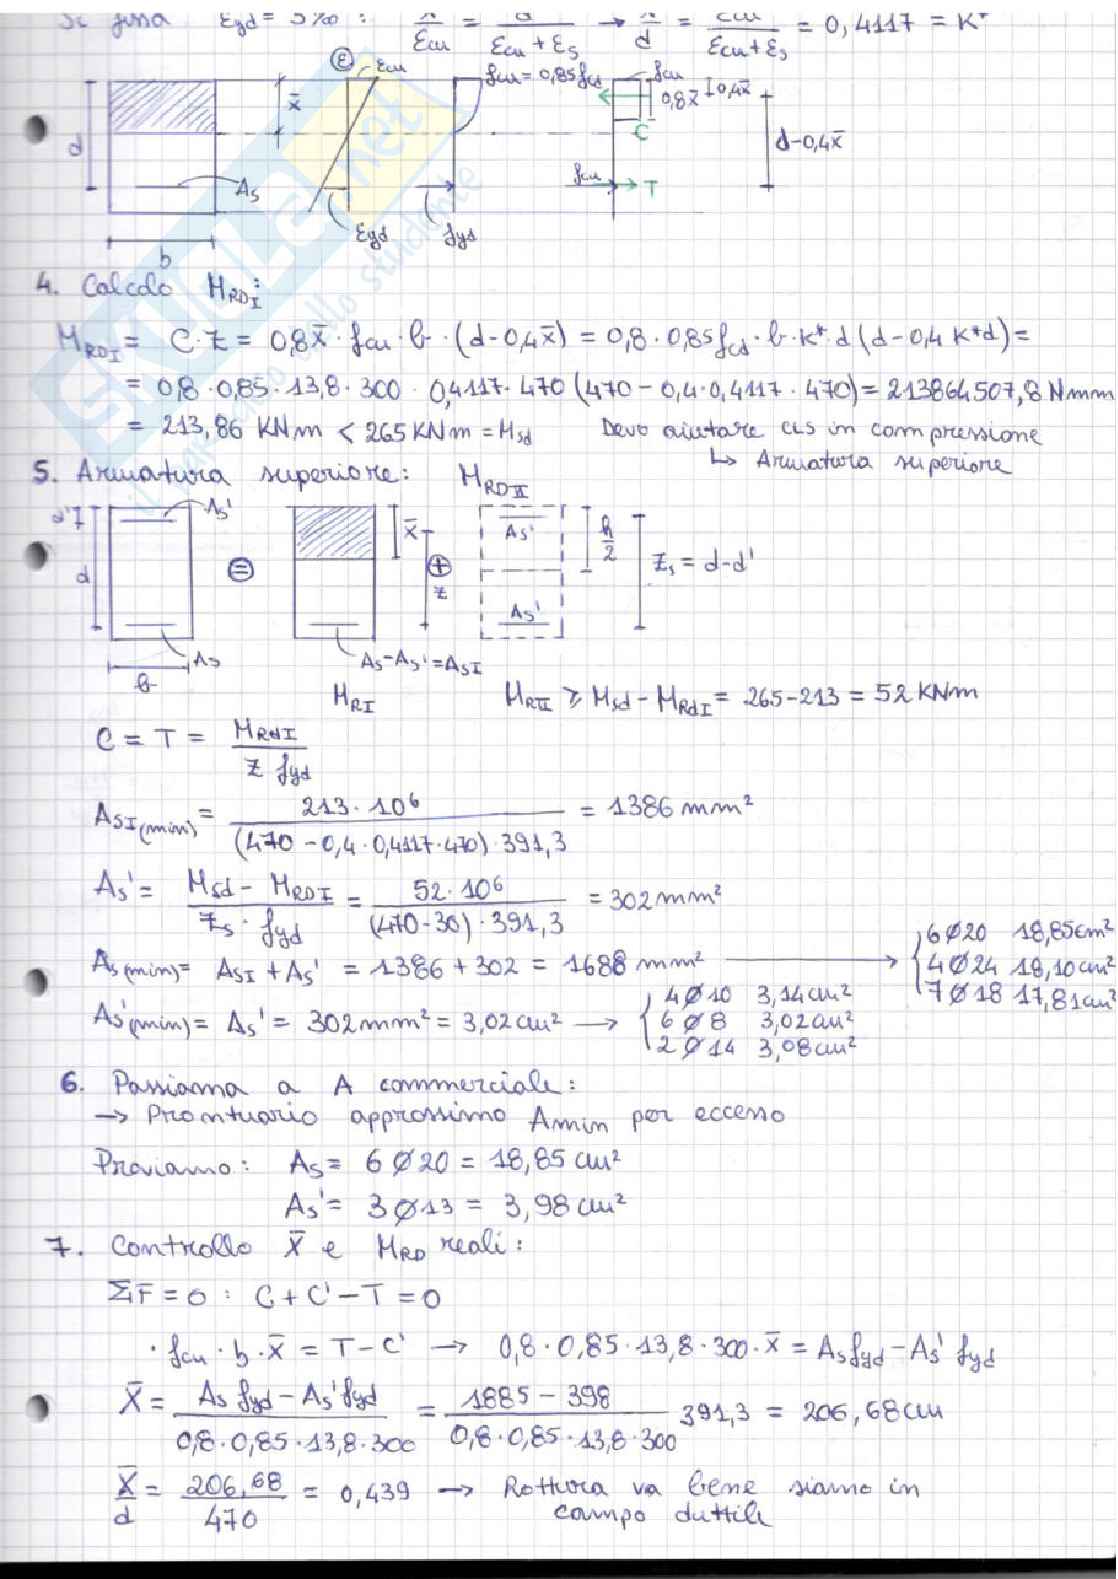 Si fissa εyd = 5‰ : x̄/εcu = d/(εcu + εs) → x̄/d = εcu/(εcu + εs) = 0,4117 = K*
ε εcu fcu = 0,85fcd fcu
x̄ 0,8x̄ 0,4x̄
d C d-0,4x̄
As fcu T
εyd fyd
b
4. Calcolo MRDI :
MRDI = C·Z = 0,8x̄ · fcu · b · (d-0,4x̄) = 0,8 · 0,85fcd · b · K* · d (d-0,4 K*d) =
= 0,8 · 0,85 · 13,8 · 300 · 0,4117 · 470 (470 - 0,4 · 0,4117 · 470) = 213864507,8 Nmm
= 213,86 KNm < 265 KNm = Msd Devo aiutare cls in compressione
↳ Armatura superiore
5. Armatura superiore: MRDII
d' As' x̄ As' h/2
d = + z Zs = d-d'
As'
As As-As' = AsI
b
MRI MRII ≥ Msd - MRdI = 265-213 = 52 KNm
C = T = MRdI/(Z fyd)
AsI(min) = 213 · 10⁶/((470 - 0,4 · 0,4117 · 470) · 391,3) = 1386 mm²
As' = (Msd - MRDI)/(Zs · fyd) = 52 · 10⁶/((470-30) · 391,3) = 302 mm²
6Ø20 18,85cm²
As(min) = AsI + As' = 1386 + 302 = 1688 mm² → 4Ø24 18,10cm²
7Ø18 17,81cm²
4Ø10 3,14cm²
As'(min) = As' = 302mm² = 3,02cm² → 6Ø8 3,02cm²
2Ø14 3,08cm²
6. Passiamo a A commerciale:
→ Prontuario approssimo Amin per eccesso
Proviamo: As = 6Ø20 = 18,85 cm²
As' = 3Ø13 = 3,98 cm²
7. Controllo x̄ e MRD reali:
ΣF = 0 : C + C' - T = 0
· fcu · b · x̄ = T - C' → 0,8 · 0,85 · 13,8 · 300 · x̄ = Asfyd - As' fyd
x̄ = (As fyd - As' fyd)/(0,8 · 0,85 · 13,8 · 300) = (1885 - 398)/(0,8 · 0,85 · 13,8 · 300) 391,3 = 206,68cm
x̄/d = 206,68/470 = 0,439 → Rottura va bene siamo in
campo duttile
SKUOLA.net